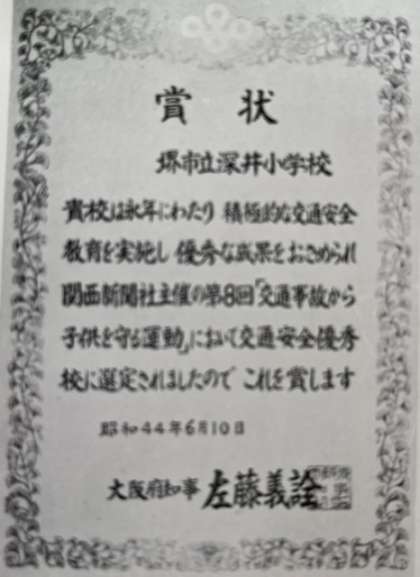 賞状
堺市立深井小学校
貴校は永年にわたり 積極的な交通安全
教育を実施し 優秀な成果をおさめられ
関西新聞社主催の第8回「交通事故から
子供を守る運動」において交通安全優秀
校に選定されましたので これを賞します
昭和44年6月10日
大阪府知事 左藤義詮